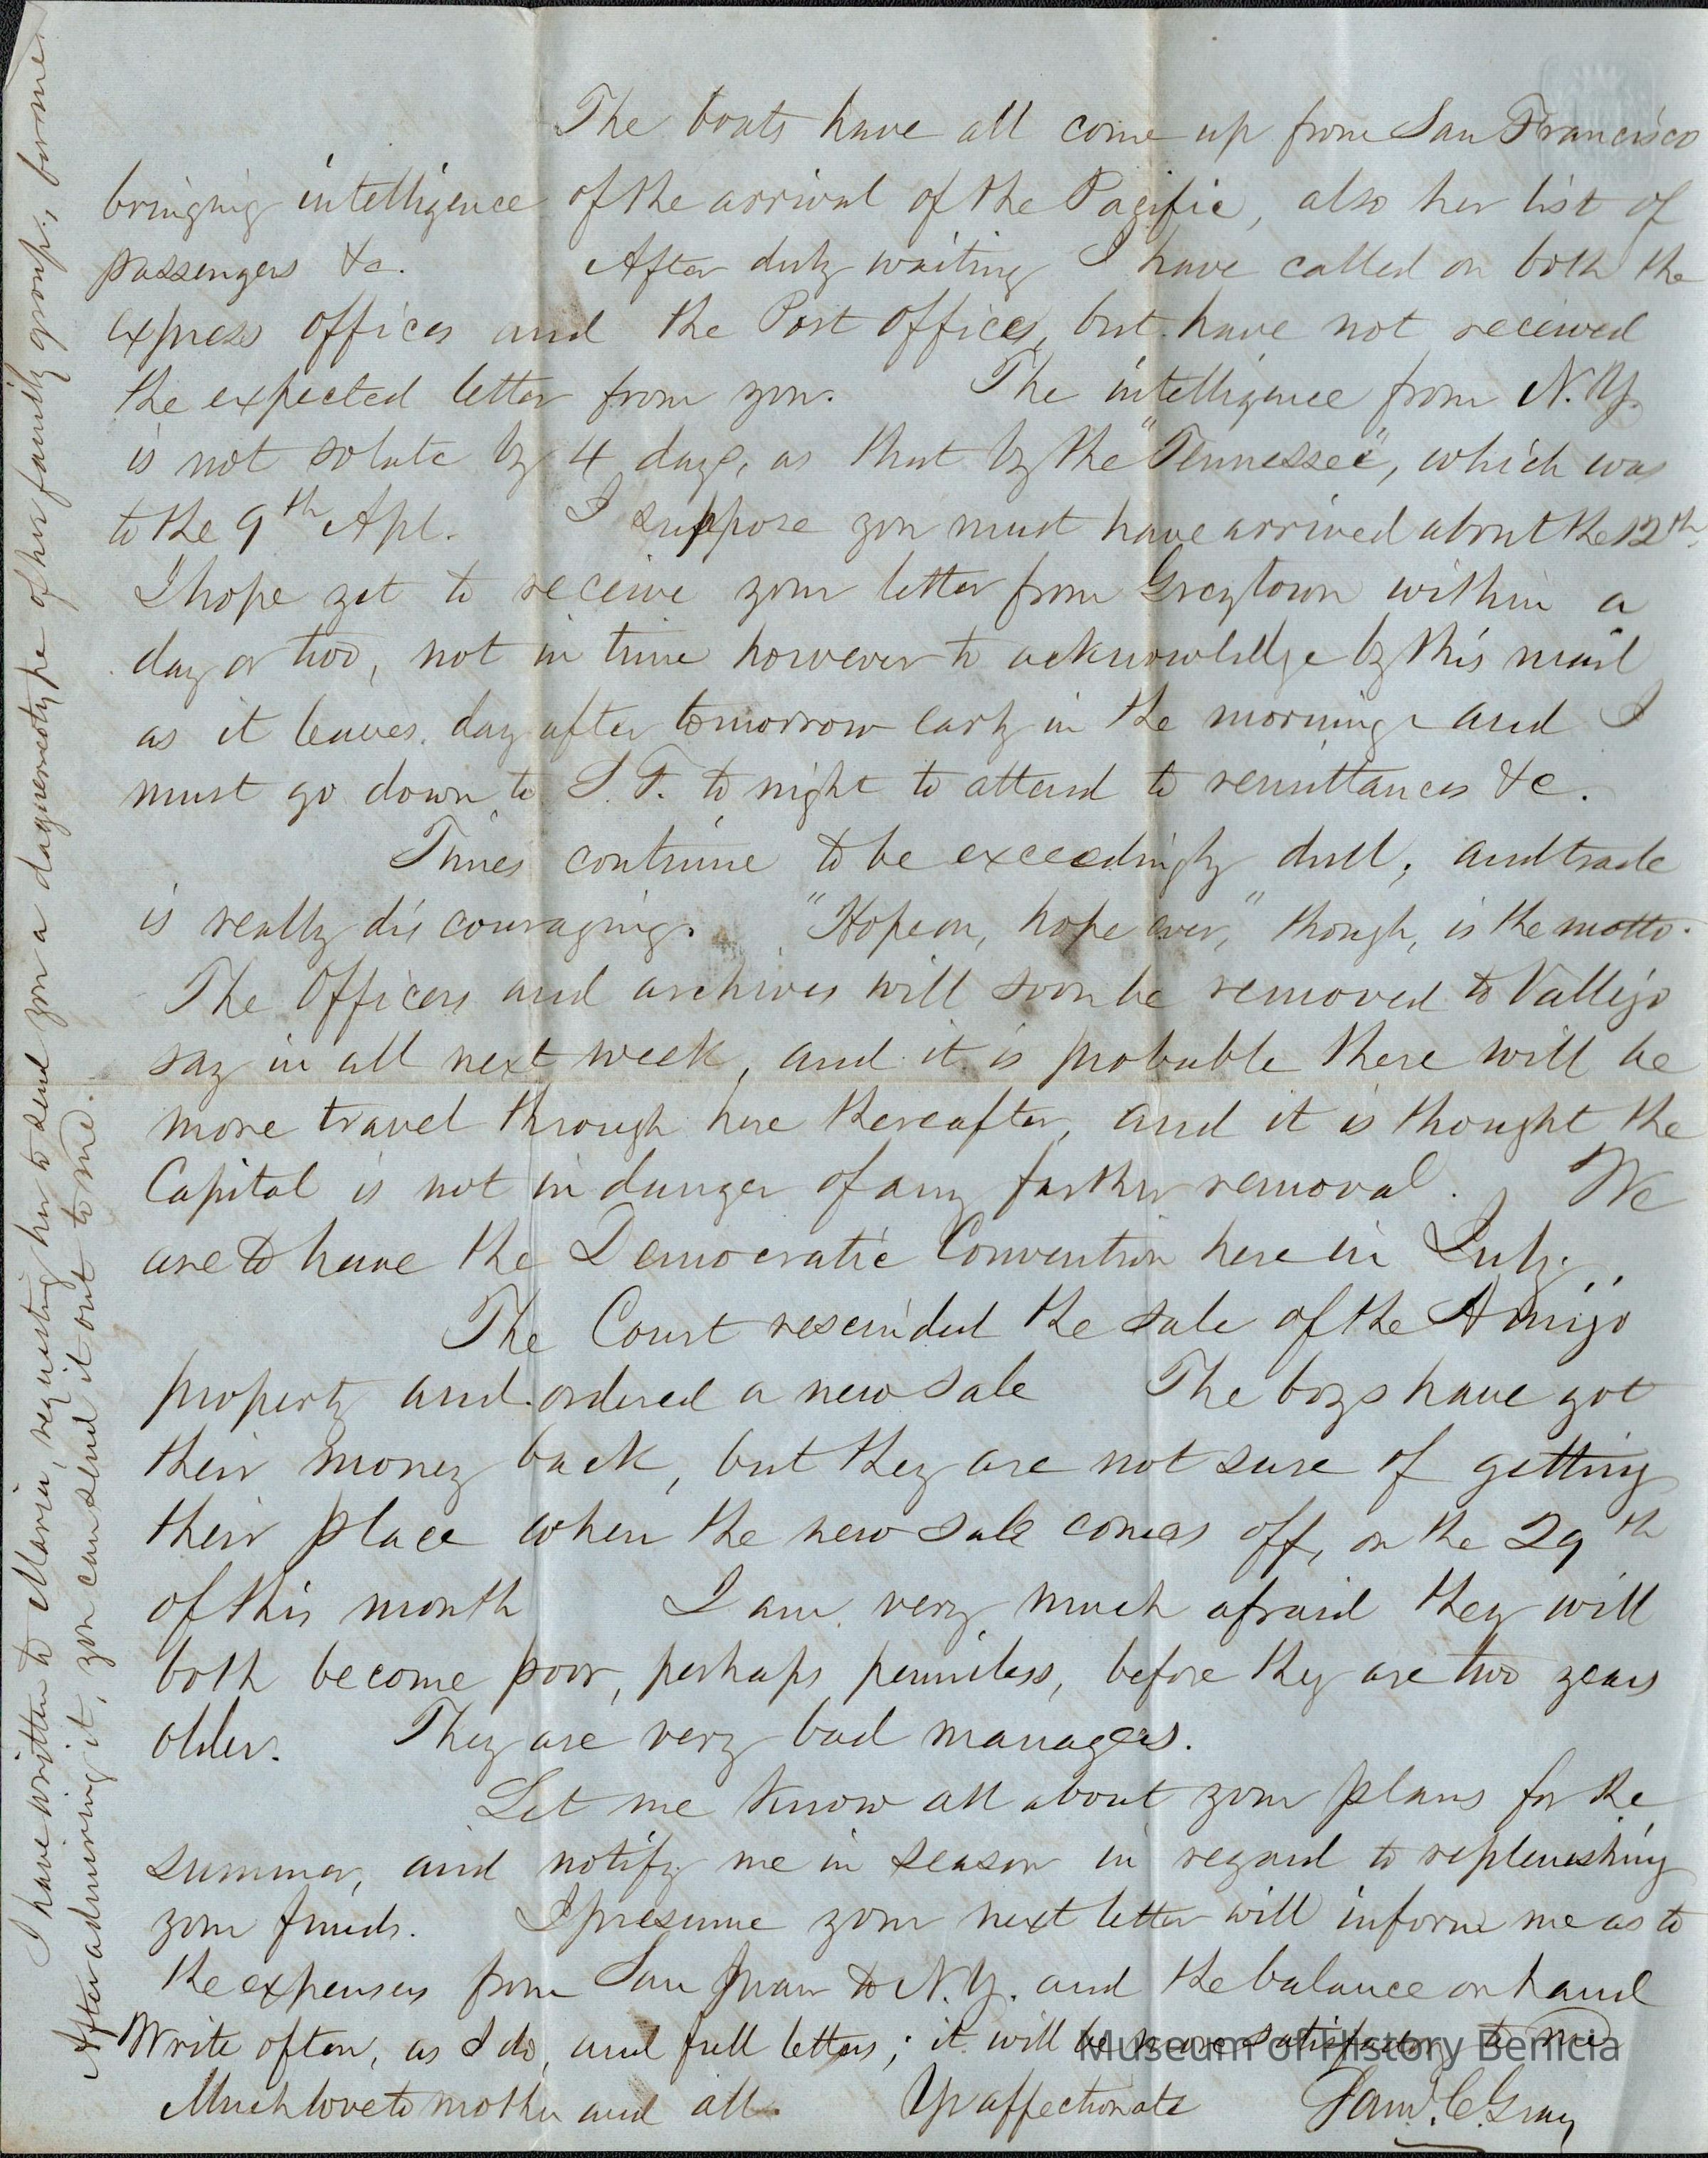 The boats have all come up from San Francisco
bringing intelligence of the arrival of the Pacific, also her list of
passengers &c. After duly waiting I have called on both the
express offices and the Post Offices, but have not received
the expected letter from you. The intelligence from N.Y.
is not so late by 4 days, as that by the "Tennessee", which was
to the 9th Apl. I suppose you must have arrived about the 12th.
I hope yet to receive your letter from Greytown within a
day or two, not in time however to acknowledge by this mail
as it leaves day after tomorrow early in the morning and I
must go down to S.F. to night to attend to remittances &c.
Times continue to be exceedingly dull, and trade
is really discouraging. "Hope on, hope ever," though, is the motto.
The Officers and archives will soon be removed to Vallejo
say in all next week, and it is probable there will be
more travel through here thereafter, and it is thought the
Capital is not in danger of any farther removal. We
are to have the Democratic Convention here in July.
The Court rescinded the sale of the Armijo
property and ordered a new sale The boys have got
their money back, but they are not sure of getting
their place when the new sale comes off, on the 29th
of this month I am very much afraid they will
both become poor, perhaps penniless, before they are two years
older. They are very bad managers.
Let me know all about your plans for the
summer, and notify me in season in regard to replenishing
your funds. I presume your next letter will inform me as to
the expenses from San Juan to N.Y. and the balance on hand
Write often, as I do, and full letters; it will be more satisfactory to me
Much love to mother and all. Yr affectionate Saml. C. Gray
I have written to Maria, requesting her to send you a daguerreotype of her family group,
After admiring it, you can send it out to me.
Museum of History Benicia